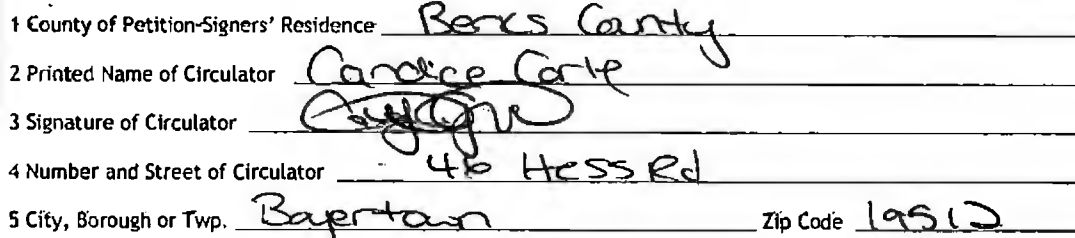 1 County of Petition-Signers' Residence Berks County
2 Printed Name of Circulator Candice
3 Signature of Circulator
4 Number and Street of Circulator 46 Hess Rd
5 City, Borough or Twp. Boyertown Zip Code 19512